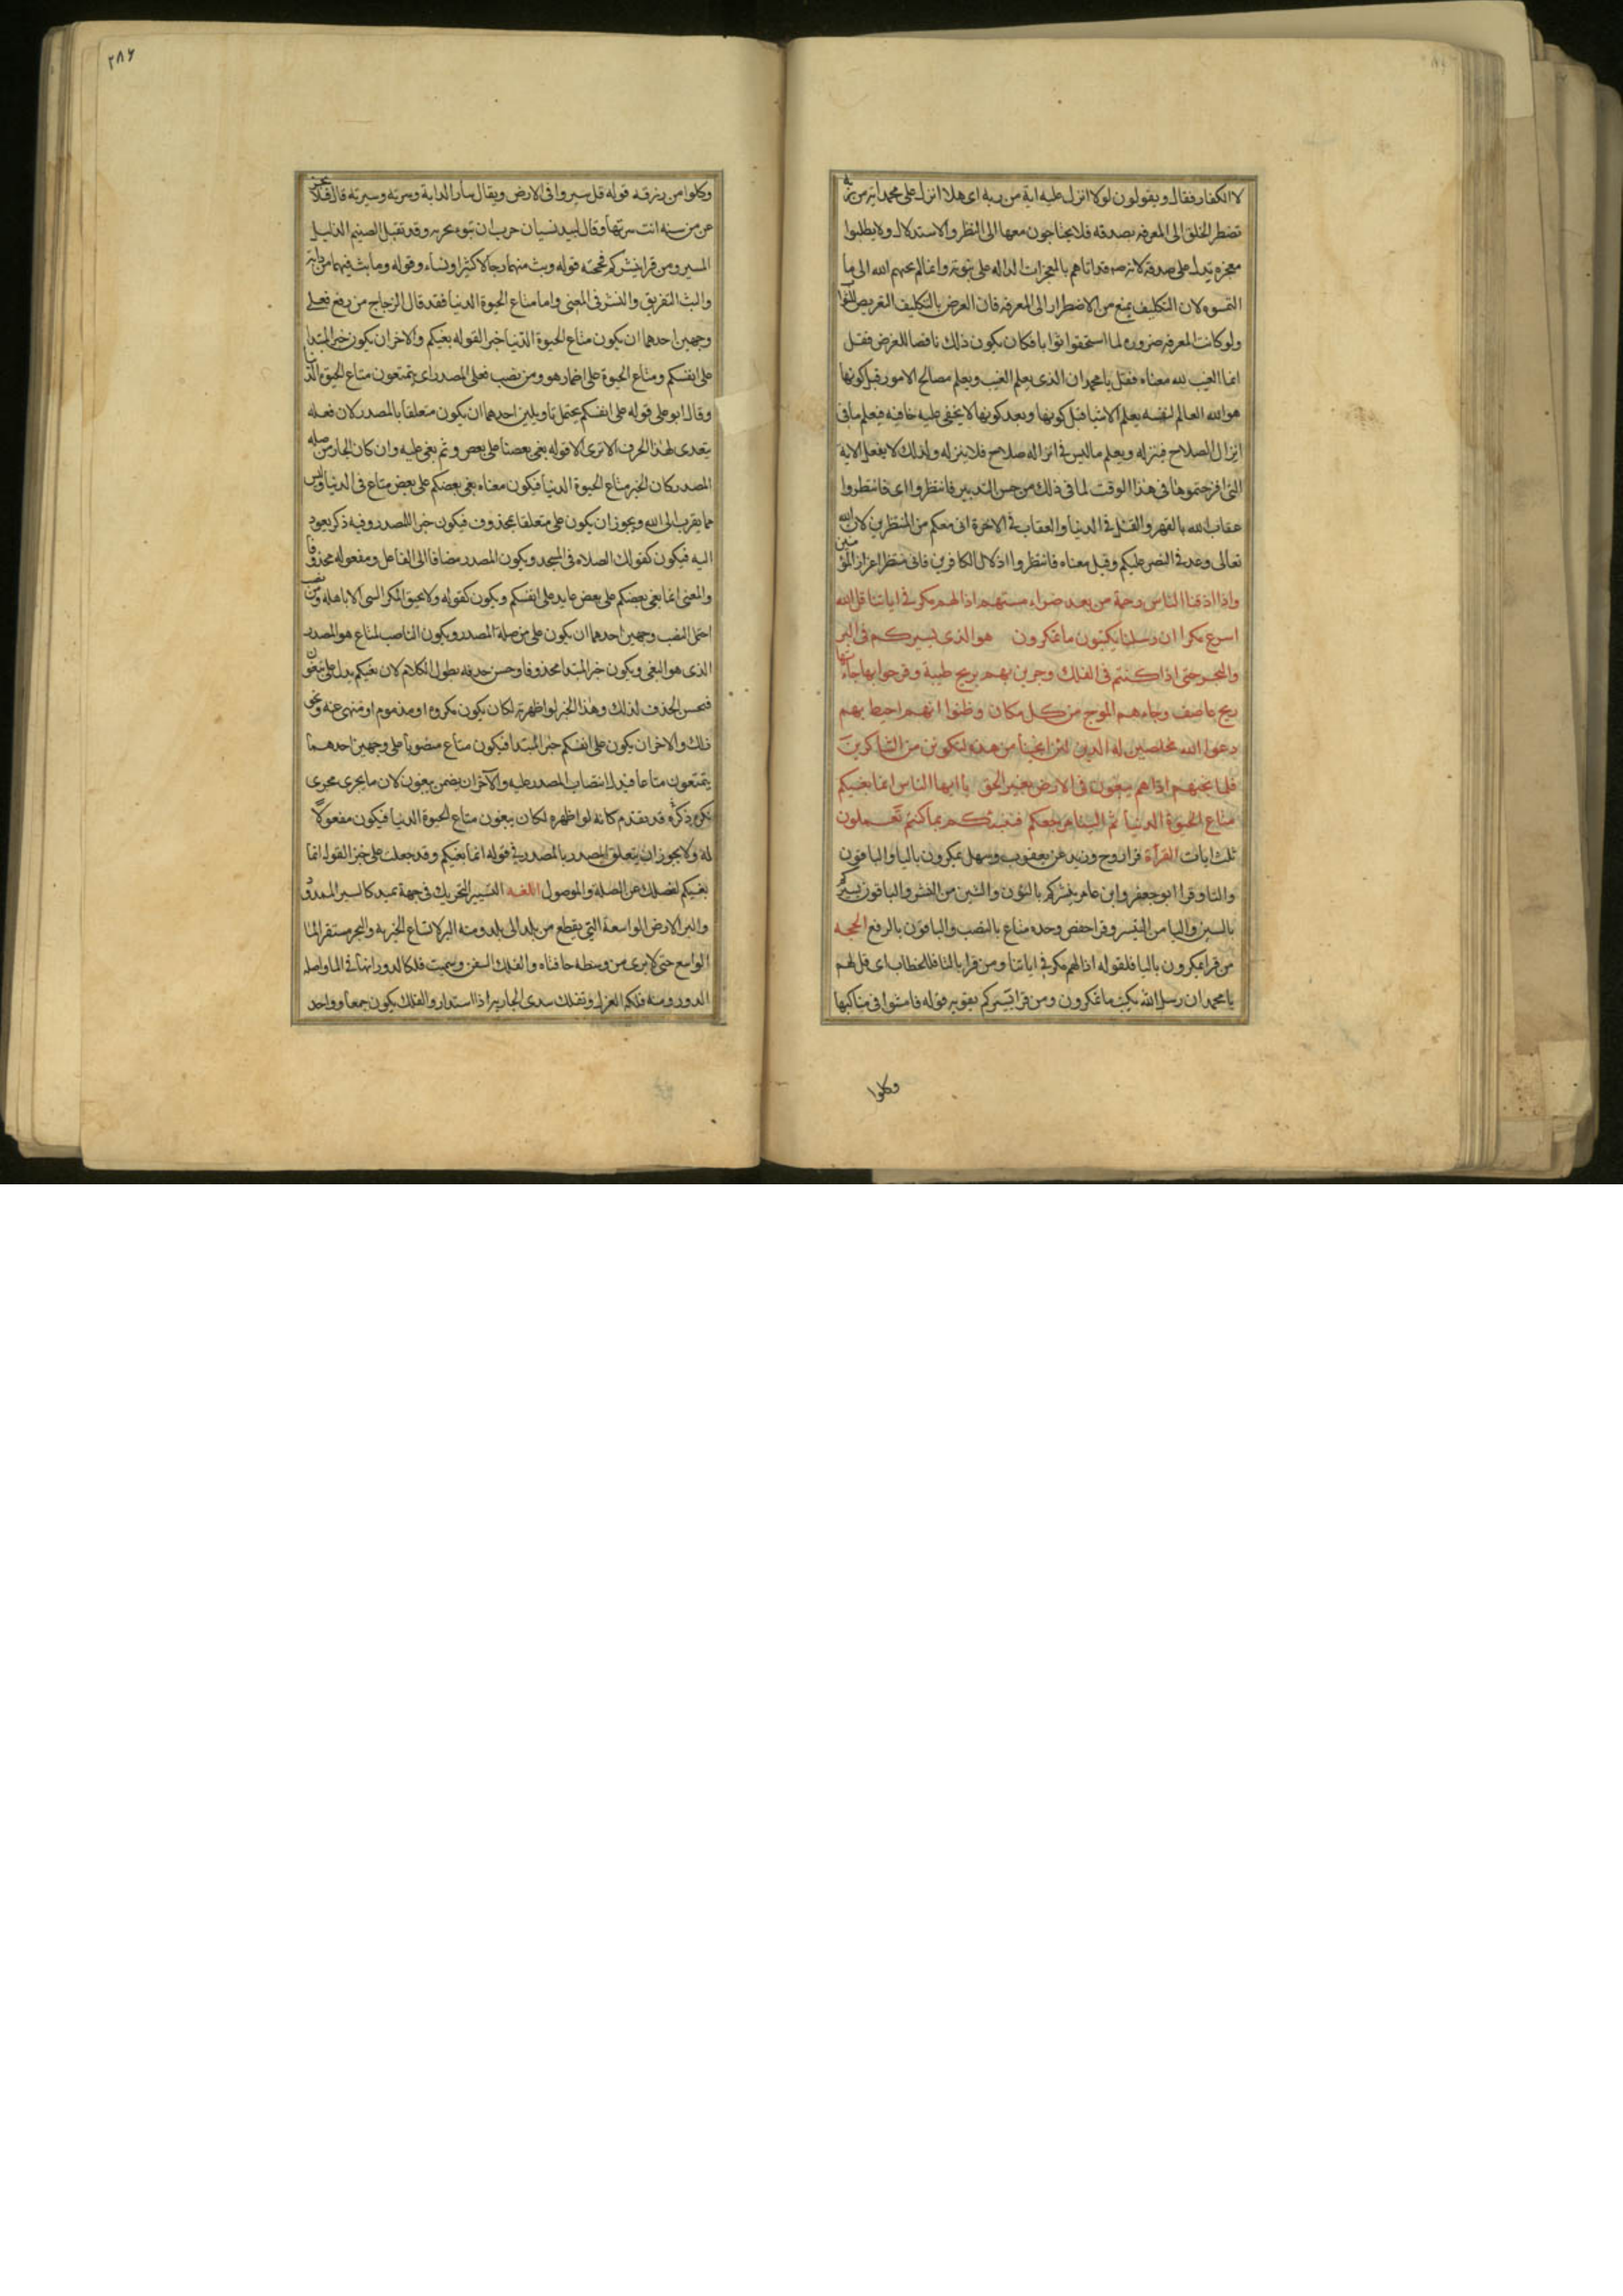 لا الكفار فقال ويقولون لولا انزل عليه اية من ربه اى هلا انزل على محمد اية من ربه
تضطر الخلق الى المعرفة بصدقه فلا يحتاجون معها الى النظر والاستدلال ولا يطلبوا
معجزة تدل على صدقه لانه قد اتاهم بالمعجزات الدالة على نبوته وانما لم يجبهم الله الى ما
التمسوه لان التكليف يمنع من الاضطرار الى المعرفة فان الغرض بالتكليف التعريض للثواب
ولو كانت المعرفة ضرورة لما استحقوا ثوابا فكان يكون ذلك ناقضا للغرض فقل
انما الغيب لله معناه فقل يا محمد ان الذى يعلم الغيب ويعلم مصالح الامور قبل كونها
هو الله العالم لنفسه يعلم الاشيا قبل كونها وبعد كونها لا يخفى عليه خافيه فيعلم ما فى
انزال الصلاح فينزله ويعلم ما ليس فى انزاله صلاح فلا ينزله ولذلك لا يفعل الاية
التى اقترحتموها فى هذا الوقت لما فى ذلك من حسن التدبير فانتظروا اى فانتظروا
عقاب الله بالقهر والقتل فى الدنيا والعقاب فى الاخرة انى معكم من المنتظرين لان الله
تعالى وعدنى النصر عليكم وقيل معناه فانتظروا اذلال الكافرين فانى منتظر اعزاز المؤمنين
واذا اذقنا الناس رحمة من بعد ضراء مستهم اذا لهم مكر فى اياتنا قل الله
اسرع مكرا ان رسلنا يكتبون ما تمكرون هو الذى يسيركم فى البر
والبحر حتى اذا كنتم فى الفلك وجرين بهم بريح طيبة وفرحوا بها جاءتها
ريح عاصف وجاءهم الموج من كل مكان وظنوا انهم احيط بهم
دعوا الله مخلصين له الدين لئن انجيتنا من هذه لنكونن من الشاكرين
فلما انجيهم اذا هم يبغون فى الارض بغير الحق يا ايها الناس انما بغيكم
متاع الحيوة الدنيا ثم الينا مرجعكم فننبئكم بما كنتم تعملون
ثلث ايات القرآءة قرا روح وزيد عن يعقوب وسهل يمكرون باليا والباقون
والتا وقرا ابو جعفر وابن عامر ينشركم بالنون والشين من النشر والباقون يسيركم
بالسين واليا من التيسير وقرا حفص وحده متاع بالنصب والباقون بالرفع الحجة
من قرا يمكرون باليا فلقوله اذا لهم مكر فى اياتنا ومن قرا بالتا فللخطاب اى قل لهم
يا محمد ان رسل الله يكتب ما تمكرون ومن قرا يسيركم يقويه قوله فامشوا فى مناكبها
وكلوا
٢٨٦
وكلوا من رزقه قوله قل سيروا فى الارض ويقال سار الدابة وسرته وسيرته قال فلا تجزعن
من سنه انت سرتها وقال لبيد
المسير ومن قرا ينشركم فحجته قوله وبث منهما رجالا كثيرا ونساء وقوله وما بث فيهما من دابة
والبث التفريق والنشر فى المعنى واما متاع الحيوة الدنيا فقد قال الزجاج من رفع فعلى
وجهين احدهما ان يكون متاع الحيوة الدنيا خبرا لقوله بغيكم والاخر ان يكون خبر المبتدا
على انفسكم ومتاع الحيوة على اضمار هو ومن نصب فعلى المصدر اى يتمتعون متاع الحيوة الدنيا
وقال ابو على قوله على انفسكم يحتمل تاويلين احدهما ان يكون متعلقا بالمصدر لان فعله
يتعدى بهذا الحرف الا ترى الا قوله بغى بعضنا على بعض وثم بغى عليه وان كان الجار من صلة
المصدر كان الخبر متاع الحيوة الدنيا فيكون معناه بغى بعضكم على بعض متاع فى الدنيا وليس
مما يقرب الى الله ويجوز ان يكون على متعلقا بمحذوف فيكون خبرا للمصدر وفيه ذكر يعود
اليه فيكون كقولك الصلاة فى المسجد ويكون المصدر مضافا الى الفاعل ومفعوله محذوفا
والمعنى انما بغى بعضكم على بعض عايد على انفسكم ويكون كقوله ولا يحيق المكر السيئ الا باهله ومن نصب
احتمل النصب وجهين احدهما ان يكون على من صلة المصدر ويكون الناصب لمتاع هو المصدر
الذى هو البغى ويكون خبر المبتدا محذوفا وحسن حذفه بطول الكلام لان بغيكم يدل على تبغون
فيحسن الحذف لذلك وهذا الخبر لو اظهرته لكان يكون مكروه او مذموم او منهى عنه ونحو
ذلك والاخر ان يكون على انفسكم خبر المبتدا فيكون متاع منصوبا على وجهين احدهما
يتمتعون متاعا فيدل انتصاب المصدر عليه والآخر ان يضمر يبغون لان ما يجرى مجرى
ذكره قد تقدم كانه لو اظهره لكان يبغون متاع الحيوة الدنيا فيكون مفعولا
له ولا يجوز ان يتعلق المصدر بالمصدر فى قوله انما بغيكم وقد جعلت على خبرا لقوله انما
بغيكم لفصلك عن الصلة والموصول اللغة التسيير التحريك فى جهة تميد كالسير الممدود
والبر الارض الواسعة التى يقطع من بلد الى بلد ومنه البر لاتساع الخير به والبحر مستقر الما
الواسع حتى لا يرى من وسطه حافتاه والفلك السفن وسميت فلكا لدورانها فى الما واصله
الدور ومنه فلكة المغزل وتفلك ثدى الجارية اذا استدار والفلك يكون جمعا وواحد